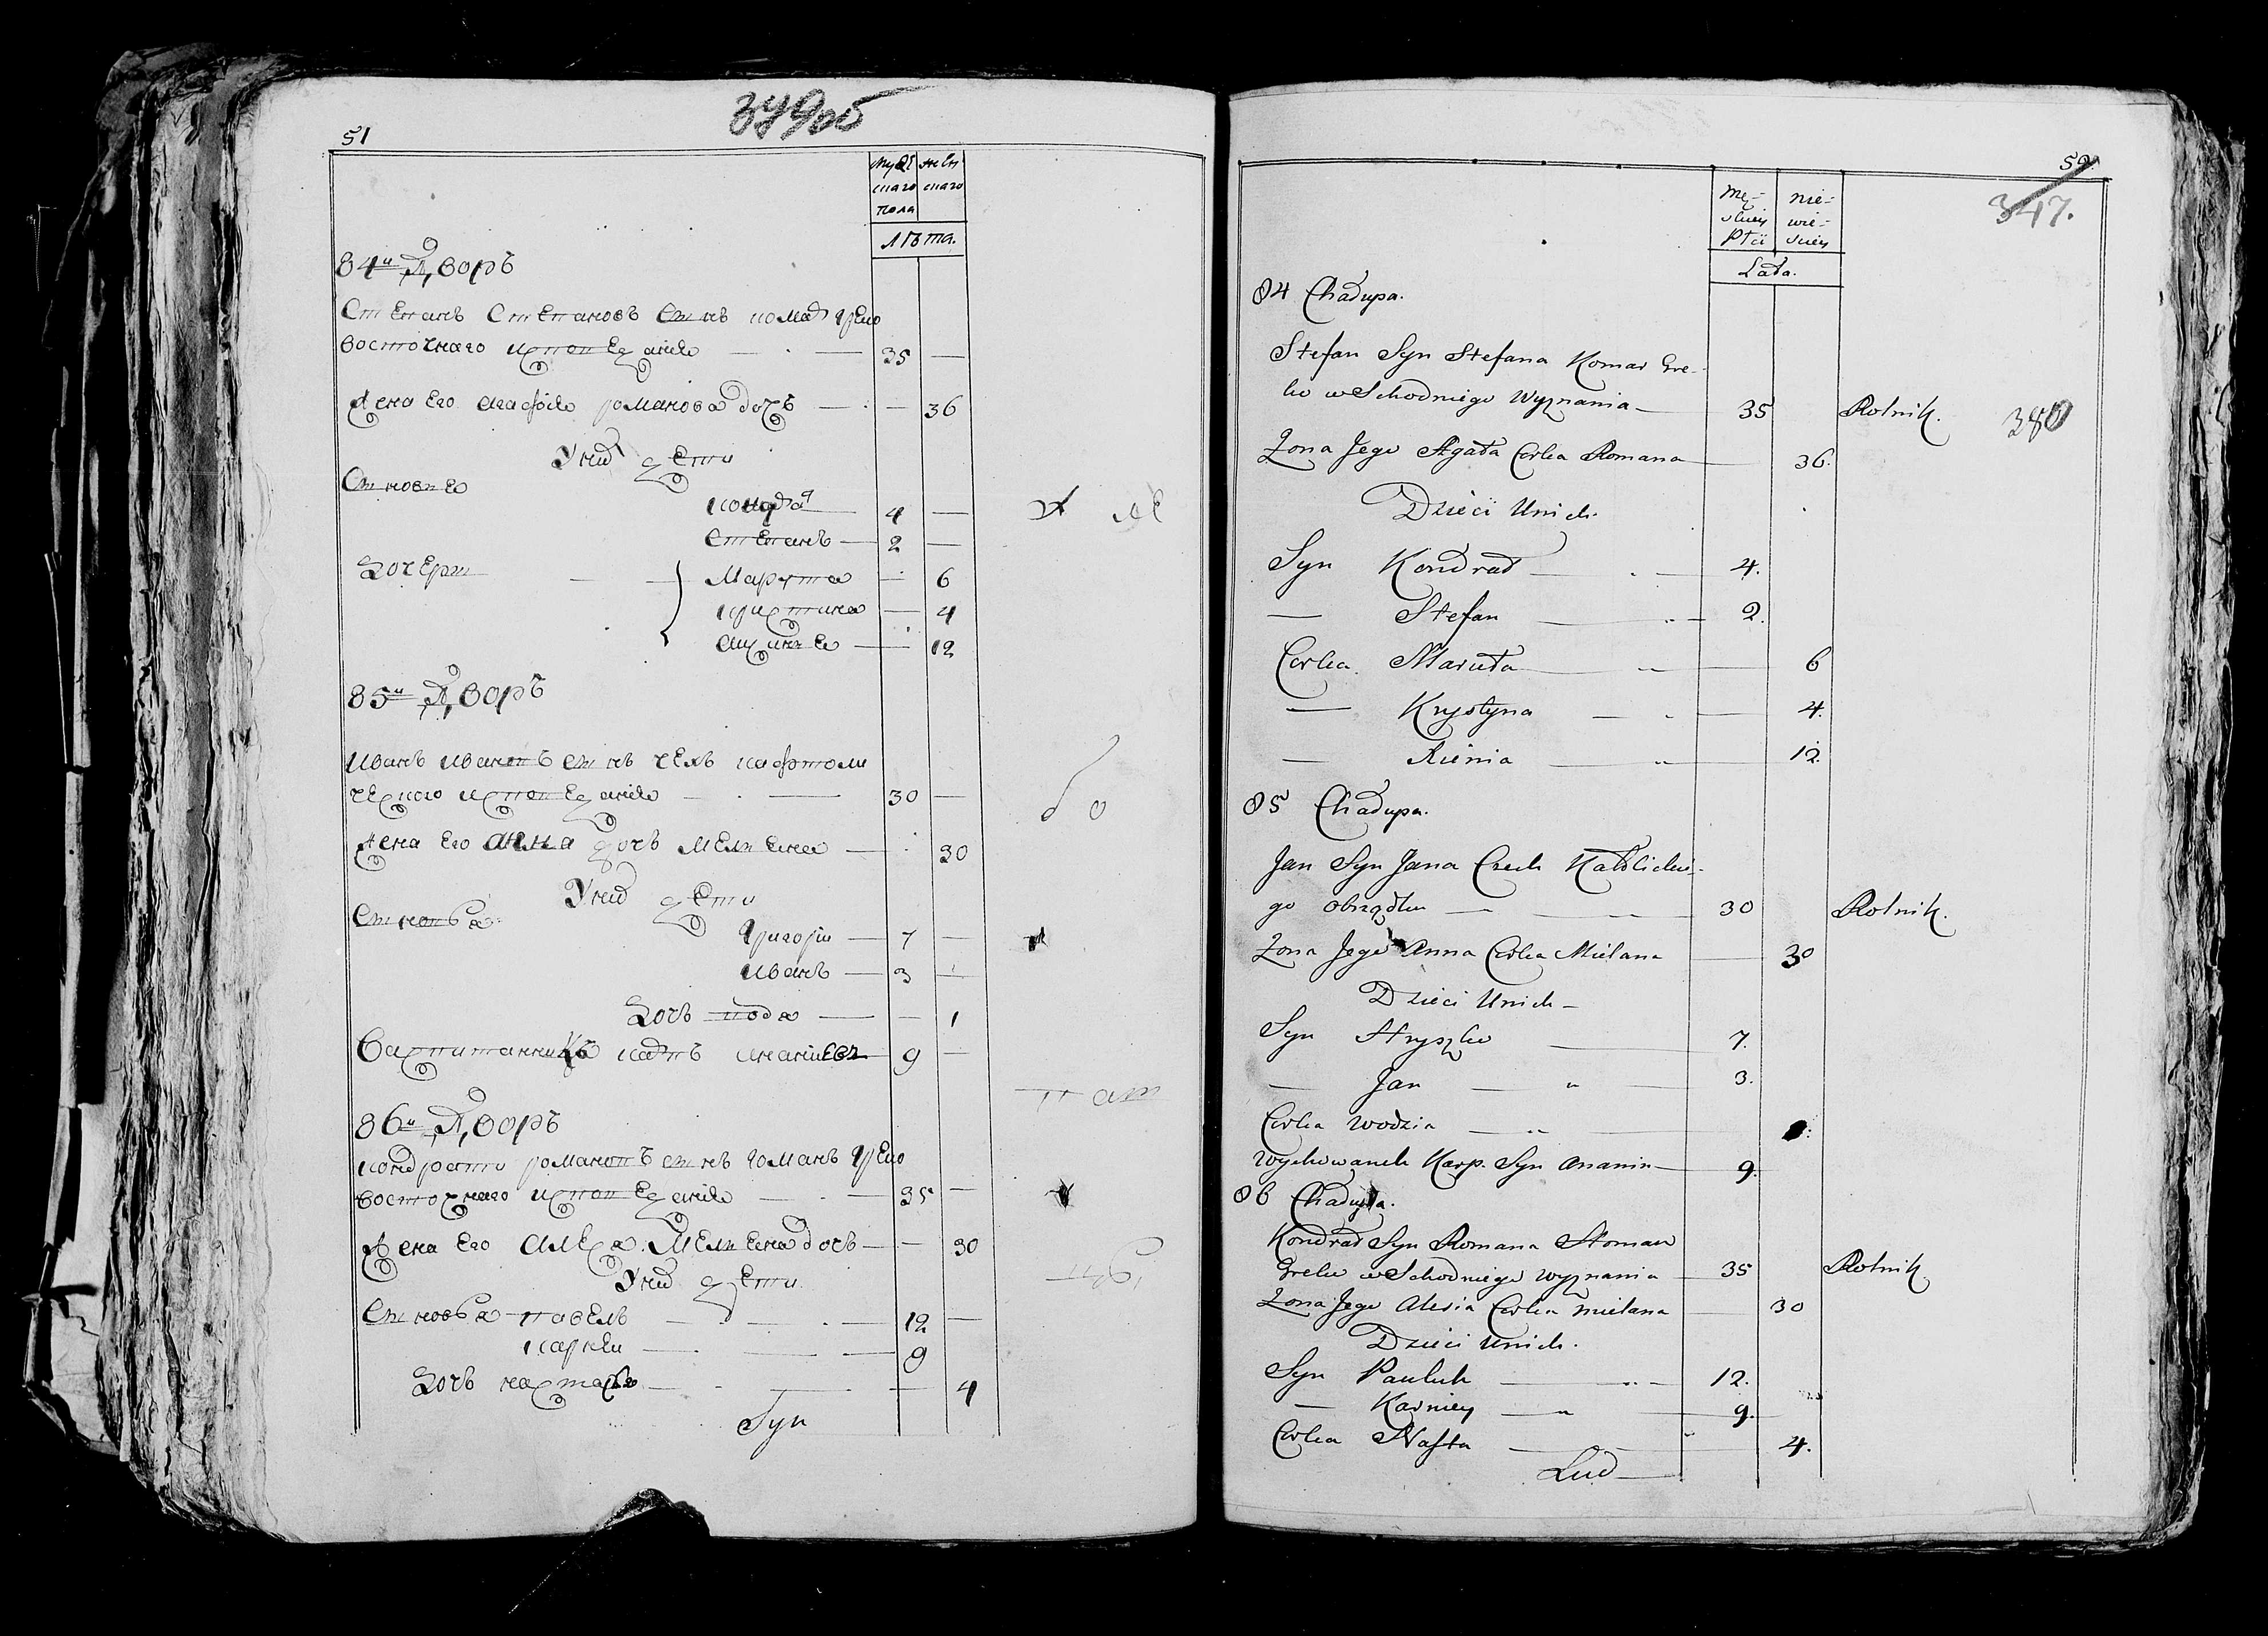 379об
51
Мужескаго пола
женскаго
лѣта.
84й Дворъ
Степанъ Степановъ сынъ комар греко
восточнаго исповеданiя — 35 —
Жена его агафiя романова дочь — 36
У них дети
Сыновья
кондрат — 4 —
Степанъ — 2 —
Дочери
Марута — 6
кристина — 4
— 12
85й Дворъ
Иванъ ивановъ сынъ чехъ католи
ческого исповеданiя — 30 —
Жена его анна дочь мелиена — 30
У них дети
Сыновья
григорiи — 7 —
иванъ — 3 —
Дочь — 1
— 9 —
86й Дворъ
кондратiи романовъ сынъ гоманъ греко
восточнаго исповеданiя — 35 —
Жена его алеся мелиена дочь — 30
У них дети
Сыновья павелъ — 12 —
карнеи — 9
Дочь настасья — 4
Syn
52.
347.
Męskiey Płci
niewieściey
Lata.
84 Chałupa.
Stefan Syn Stefana Komar Gre-
ko wSchodniego Wyznania — 35 Rolnik. 380
Zona Jego Agata Corka Romana — 36.
Dzieci Unich
Syn Kondrad — 4.
— Stefan — 2.
Corka Maruta — 6
— Krystyna — 4.
— Xienia — 12.
85 Chałupa.
Jan Syn Jana Czech Katolickie-
go obrządku — 30 Rolnik.
Zona Jego Anna Corka Mielana — 30
Dzieci Unich —
Syn Hryszko — 7.
— Jan — 3.
Corka Wodzia —
Wychowanek Karp. Syn Ananin — 9.
86 Chałupa.
Kondrad Syn Romana Homan
Greko wSchodniego wyznania — 35 Rolnik
Zona Jego Alesia Corka Mielana — 30
Dzieci Unich.
Syn Pauluk — 12.
— Karniey — 9.
Corka Nasta — 4.
Lud —